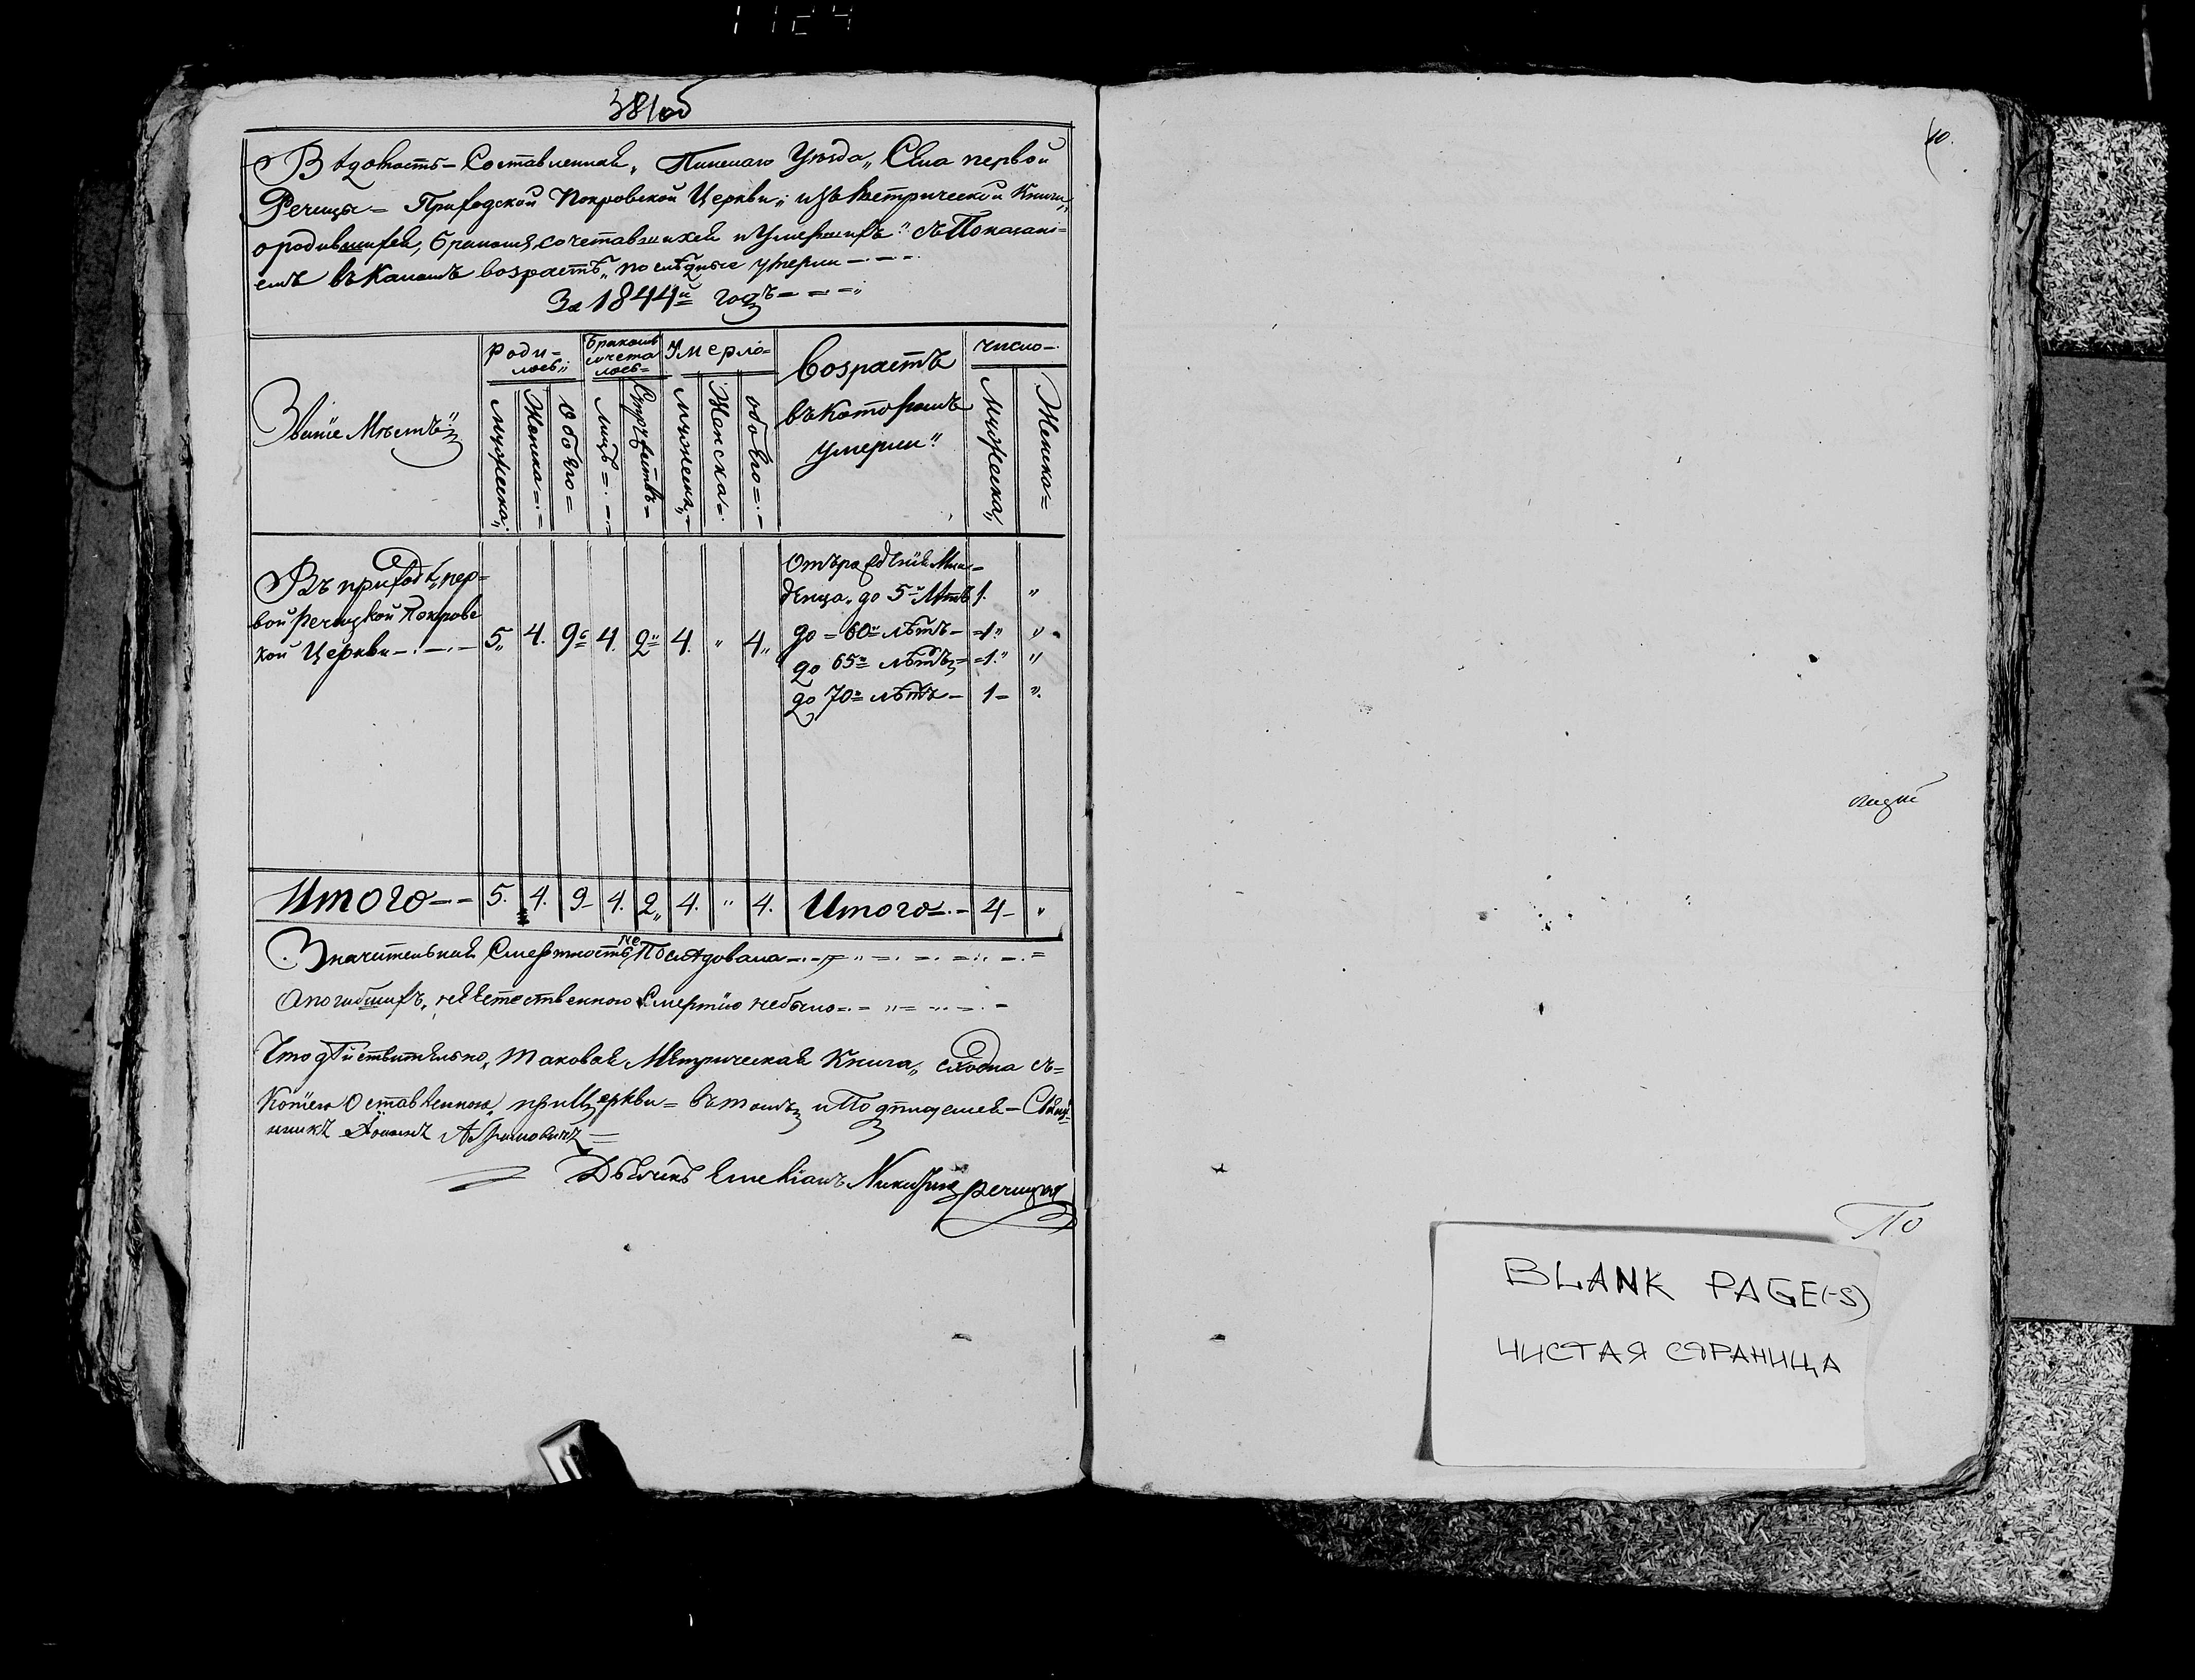 1124
381об
Вѣдомость - Составленная „ Пинскаго Уѣзда „ Села первой
Речицы = Приходской Покровской Церкви „ изъ метрической Книги „
о родившихся, бракомъ сочетавшихся и Умершихъ " съ Показані=
емъ въ Какомъ возрастѣ „ послѣдные умерли
За 1844й годъ
Званіе Мѣстъ
Роди-лось „
Бракомъ сочеталось=
Умерло=
Возрастъ въ Которомъ умерли "
число
Мужеска „
Женска
Обоего =
Лицъ
Супружествъ
Мужеска
Женска
обоего
Мужеска
Женска=
Въ приходѣ „ пер=
вой Речицкой Покровс
кой Церкви
5 „ 4. 9 4. 2 4. " 4 „
Отъ рожденія Мла-
денца „ до 5 Лѣтъ 1. "
до = 60 лѣтъ - =1" "
до 65 лѣтъ =1." "
до 70 лѣтъ - 1- ".
Итого 5. 4. 9 4. 2„ 4. " 4. Итого 4- "
Значительная Смертность не Послѣдовала
О погибшихъ „ неестественною Смертію небыло
Что дѣйствительно „ таковая Метрическая Книга „ сходна съ=
Копіею Оставленною „ при Церкви = въ томъ и Подписуемся - Свящ
нникъ Іоаннъ
Дьячикъ Емеліанъ
10.
По
BLANK PAGE(-S)
ЧИСТАЯ СТРАНИЦА